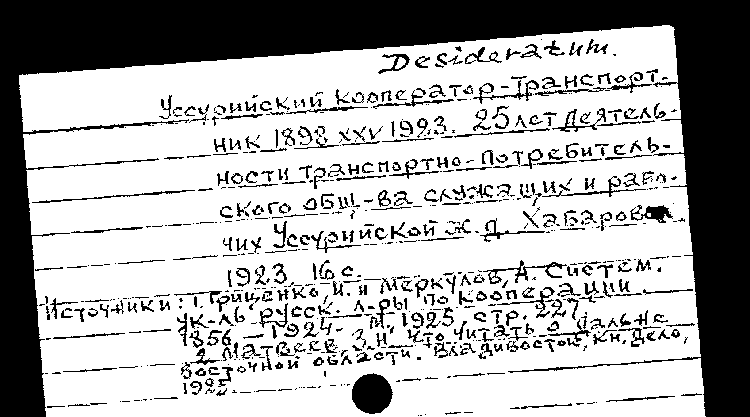 Desideratum.
Уссурийский кооператор-транспорт-
ник 1898 XXV 1923. 25 лет деятель-
ности транспортно-потребитель-
ского общ-ва служащих и рабо-
чих Уссурийской ж. д. Хабаровск.
1923 16 с.
Источники: 1. Гриценко, И. и Меркулов, А. Систем.
ук-ль русск. л-ры по кооперации.
1856 - 1924. М. 1925, стр. 227,
2 Матвеев, З.Н. Что читать о Дальне
восточной области. Владивосток, Кн. дело,
1925.